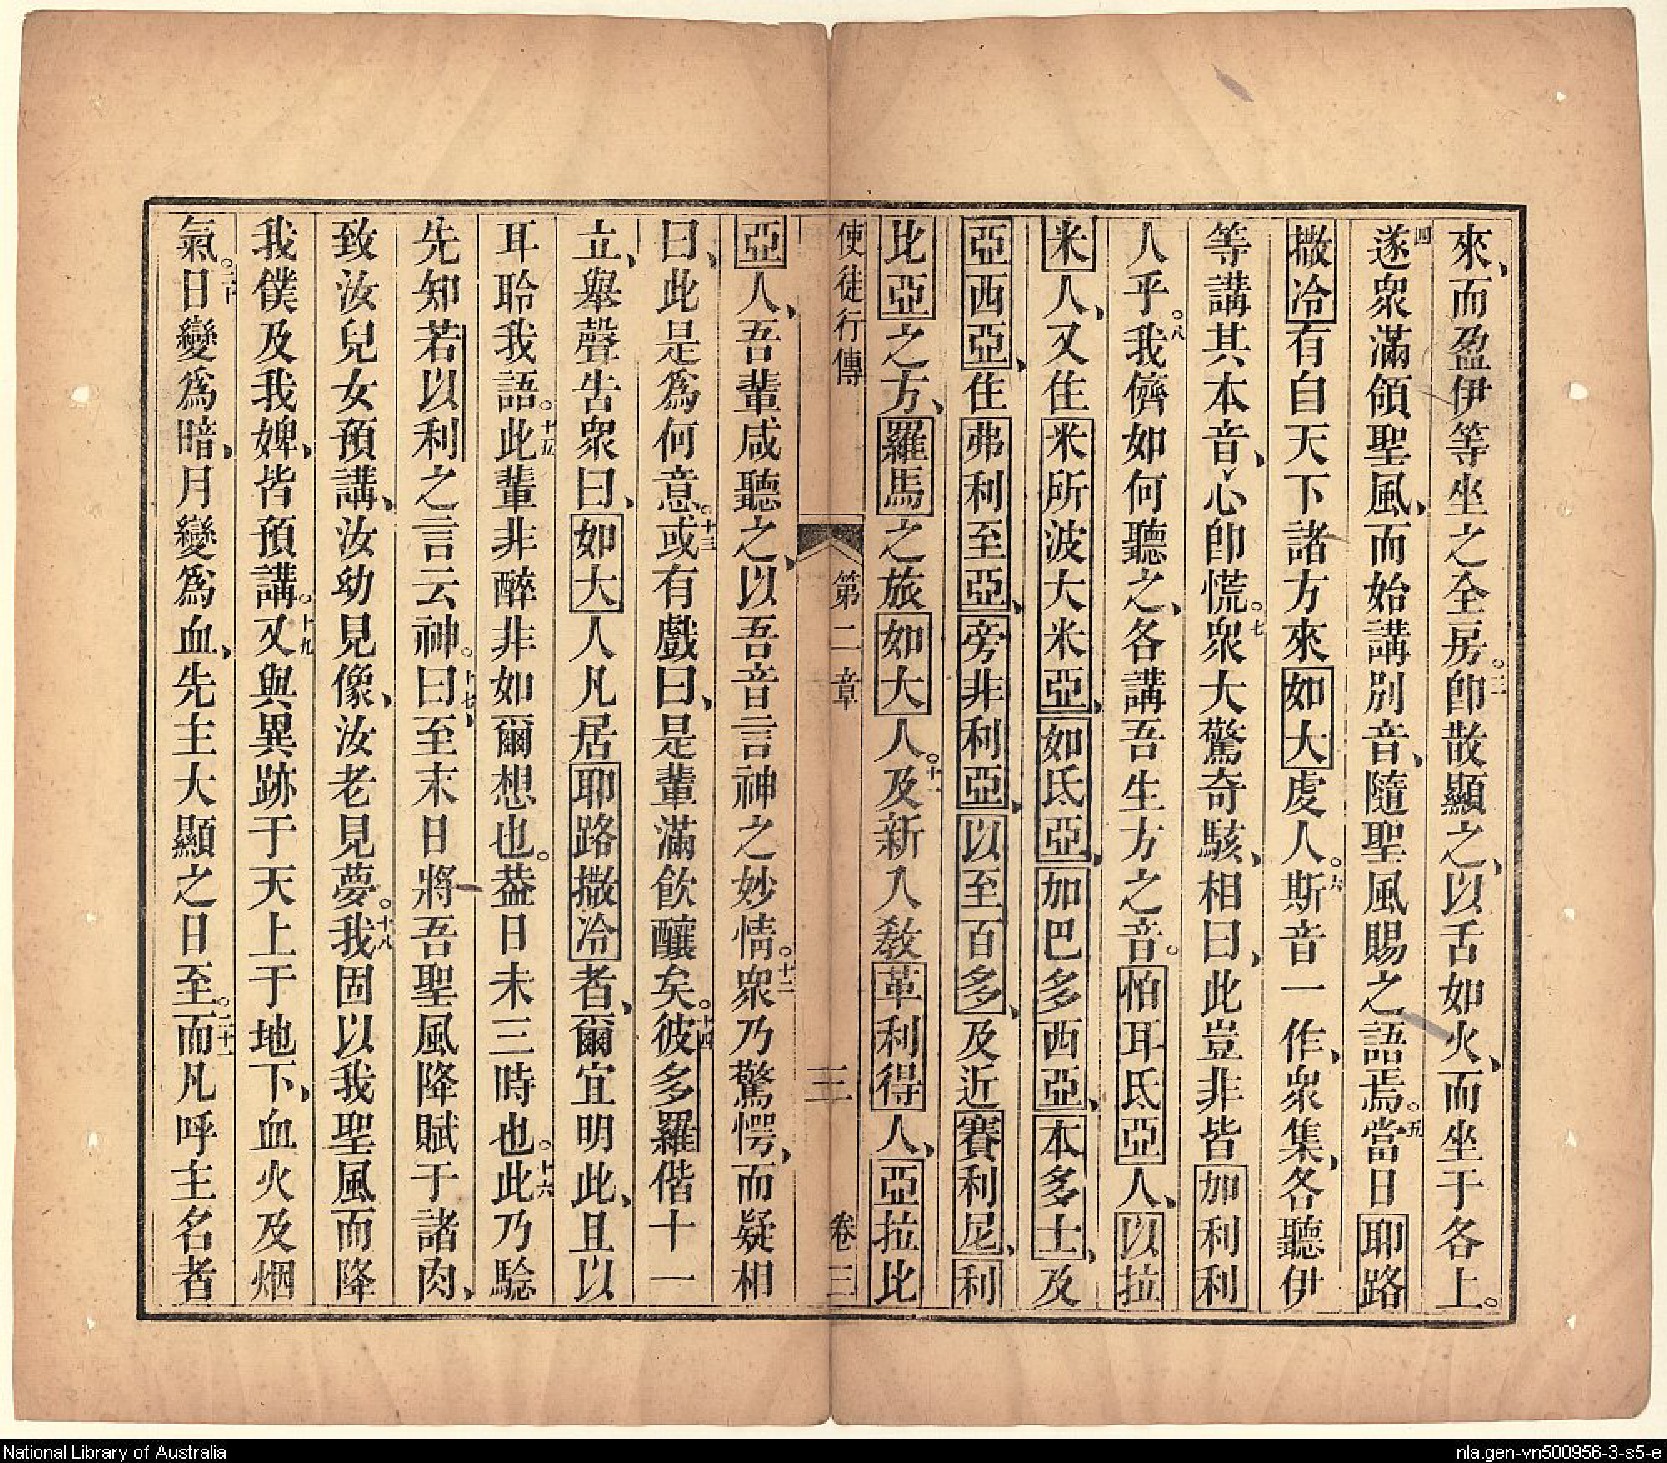 來、而盈伊等坐之全房。三卽散顯之、以舌如火、而坐于各上。
四遂衆滿領聖風、而始講別音、隨聖風賜之語焉。五當日耶路
撒冷有自天下諸方來如大虔人。六斯音一作、衆集、各聽伊
等講其本音、心卽慌。七衆大驚奇駭、相曰、此豈非皆加利利
人乎。八我儕如何聽之、各講吾生方之音。怕耳氐亞人、以拉
米人、又住米所波大米亞、如氐亞、加巴多西亞、本多士、及
亞西亞、住弗利至亞、旁非利亞、以至百多、及近賽利尼、利
比亞之方、羅馬之旅如大人。十一及新入敎革利得人、亞拉比
使徒行傳 第二章 三 卷三
亞人、吾輩咸聽之、以吾音言神之妙情。十二衆乃驚愕、而疑相
曰、此是爲何意。十三或有戲曰、是輩滿飮釀矣。十四彼多羅偕十一
立、舉聲告衆曰、如大人凡居耶路撒冷者、爾宜明此、且以
耳聆我語。十五此輩非醉非如爾想也。葢日未三時也。十六此乃驗
先知若以利之言云神。十七曰至末日將吾聖風降賦于諸肉、
致汝兒女預講、汝幼見像、汝老見夢。十八我固以我聖風而降
我僕及我婢、皆預講。十九又與異跡于天上于地下、血火及烟
氣。二十日變爲暗、月變爲血、先主大顯之日至。二十一而凡呼主名者
National Library of Australia
nla.gen-vn500956-3-s5-e